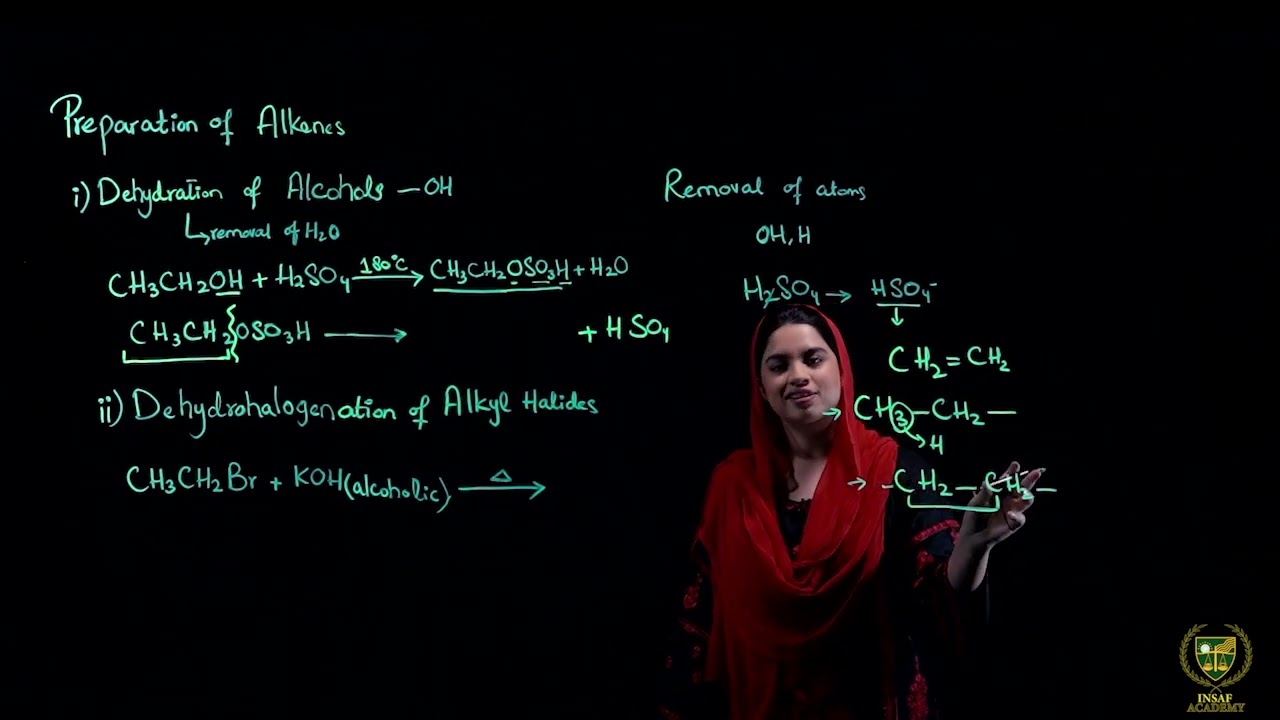 Preparation of Alkenes
i) Dehydration of Alcohols —OH
↳removal of H2O
CH3CH2OH + H2SO4 180°C→ CH3CH2OSO3H + H2O
CH3CH2OSO3H → + HSO4
ii) Dehydrohalogenation of Alkyl Halides
CH3CH2Br + KOH(alcoholic) Δ→
Removal of atoms
OH, H
H2SO4 → HSO4⁻
↓
CH2=CH2
→ CH3—CH2—
↘H
→ -CH2—CH2—
INSAF
ACADEMY